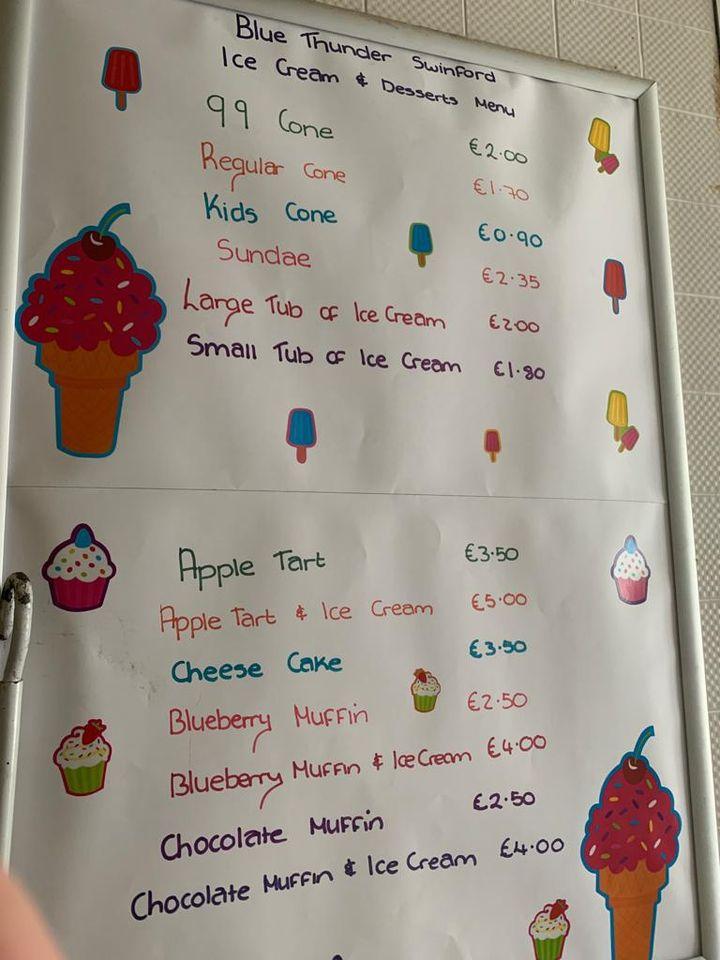 Blue Thunder Swinford
Ice Cream & Desserts Menu
99 Cone €2.00
Regular Cone €1.70
Kids Cone €0.90
Sundae €2.35
Large Tub of Ice Cream €2.00
Small Tub of Ice Cream €1.80
Apple Tart €3.50
Apple Tart & Ice Cream €5.00
Cheese Cake €3.50
Blueberry Muffin €2.50
Blueberry Muffin & Ice Cream €4.00
Chocolate Muffin €2.50
Chocolate Muffin & Ice Cream €4.00